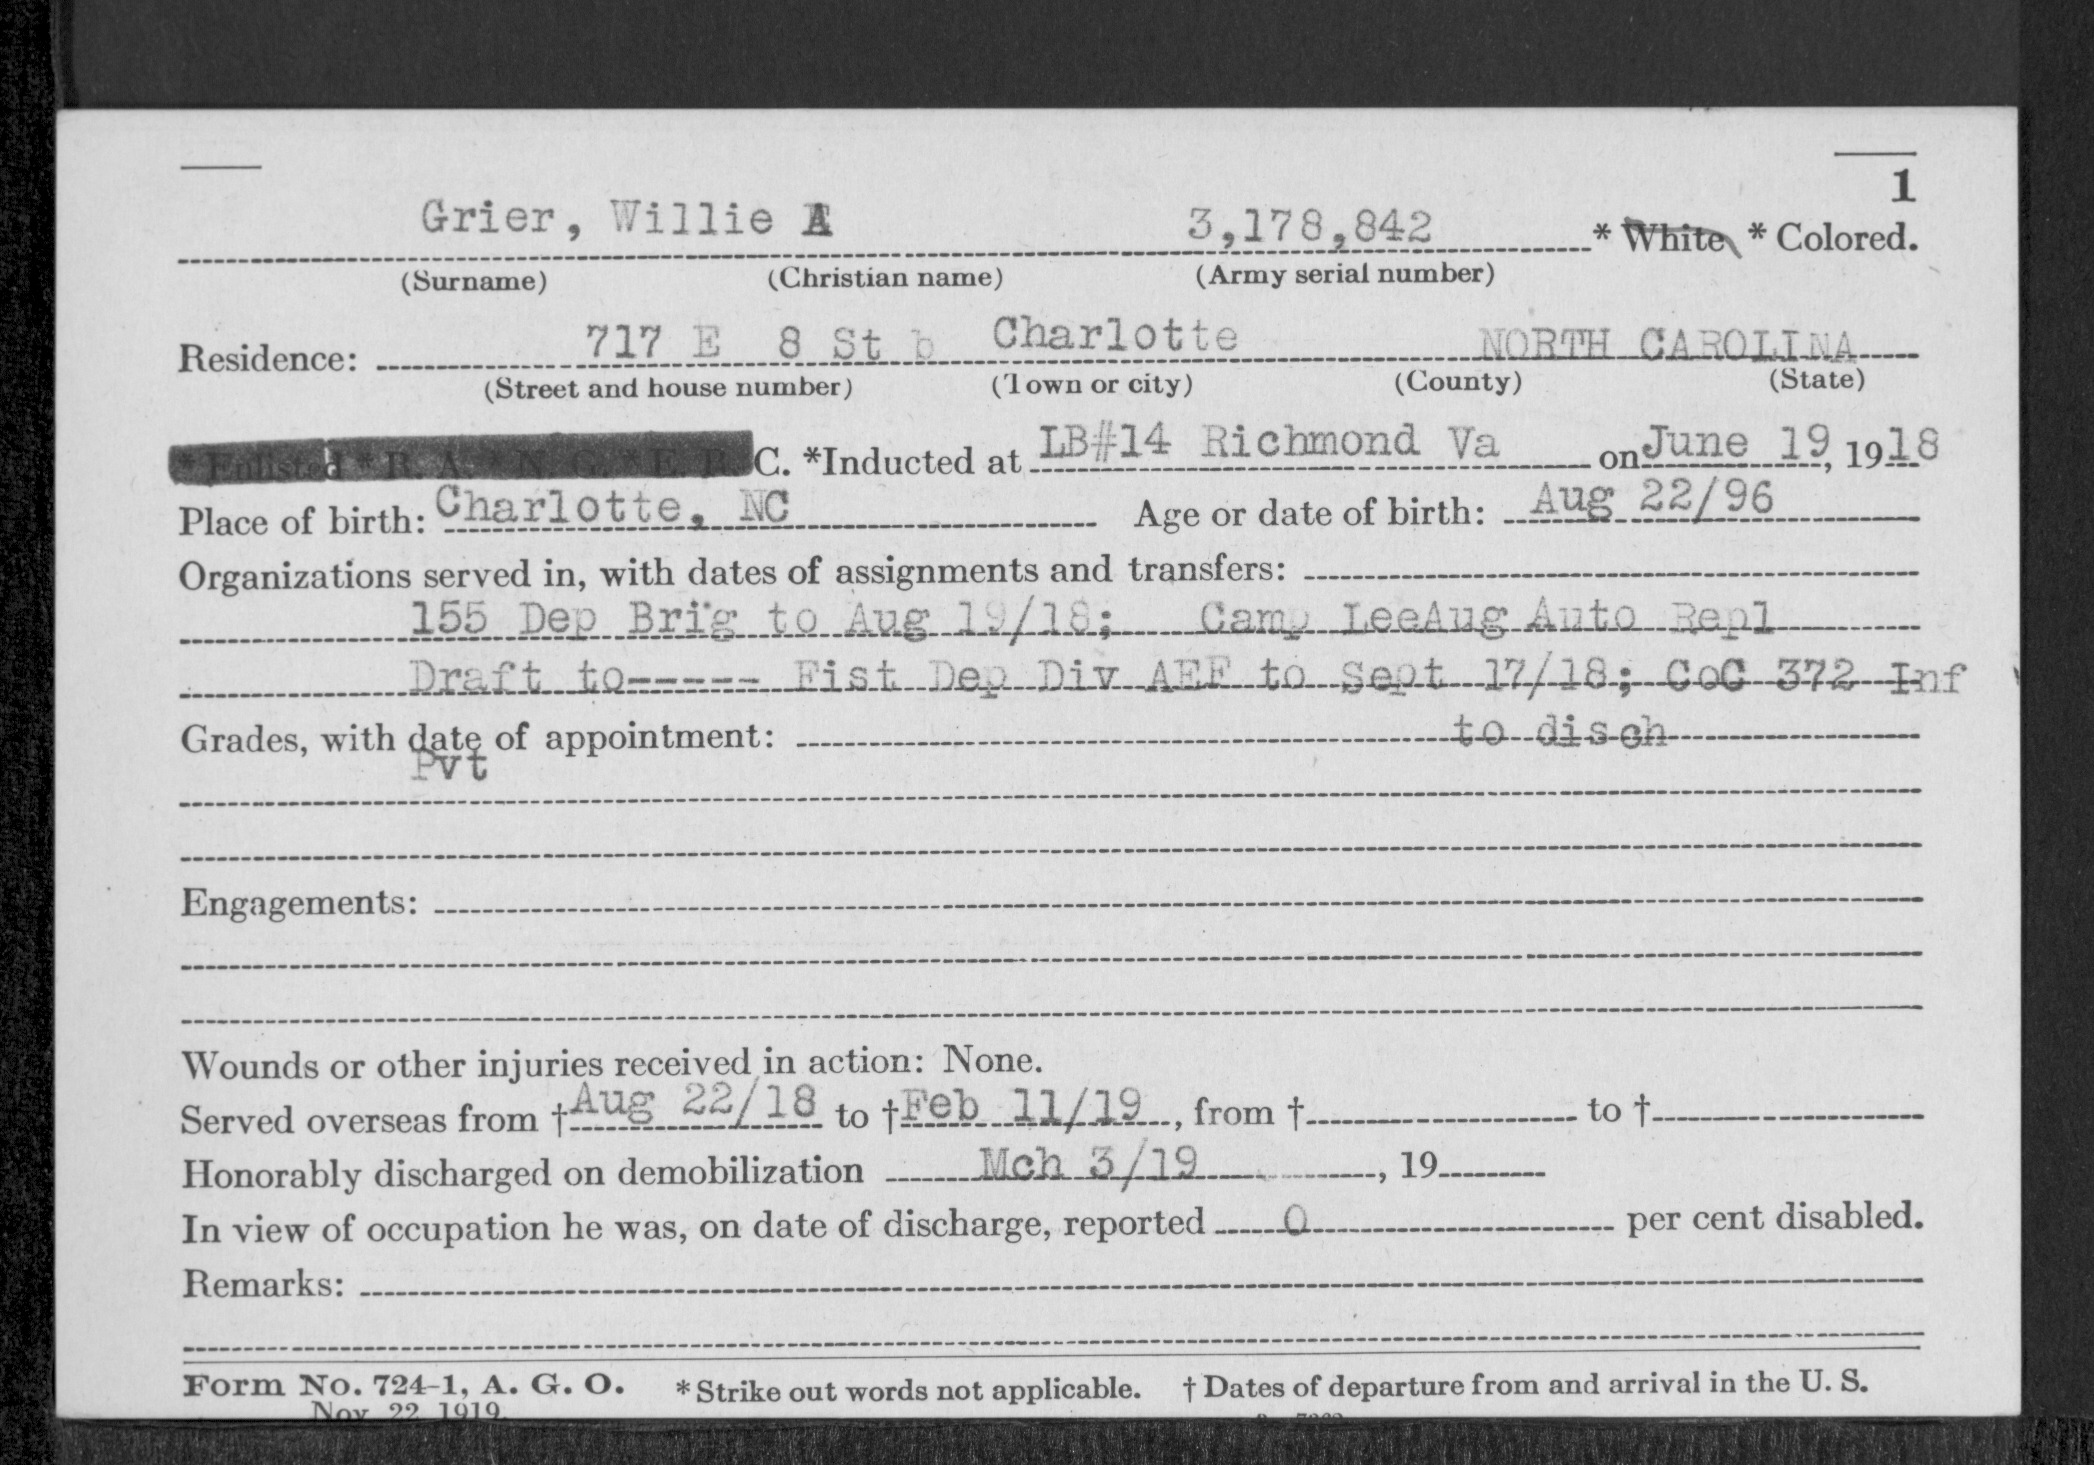 1
Grier, Willie A 3,178,842 * White * Colored.
(Surname) (Christian name) (Army serial number)
Residence: 717 E 8 St b Charlotte NORTH CAROLINA
(Street and house number) (Town or city) (County) (State)
* Enlisted * R. A. * N. G. * E. R. C. *Inducted at LB#14 Richmond Va on June 19, 1918
Place of birth: Charlotte, NC Age or date of birth: Aug 22/96
Organizations served in, with dates of assignments and transfers:
155 Dep Brig to Aug 19/18; Camp LeeAug Auto Repl
Draft to----- Fist Dep Div AEF to Sept 17/18; CoC 372 Inf
to disch
Grades, with date of appointment:
Pvt
Engagements:
Wounds or other injuries received in action: None.
Served overseas from † Aug 22/18 to † Feb 11/19, from † to †
Honorably discharged on demobilization Mch 3/19, 19
In view of occupation he was, on date of discharge, reported 0 per cent disabled.
Remarks:
Form No. 724-1, A. G. O. * Strike out words not applicable. † Dates of departure from and arrival in the U. S.
Nov 22 1919